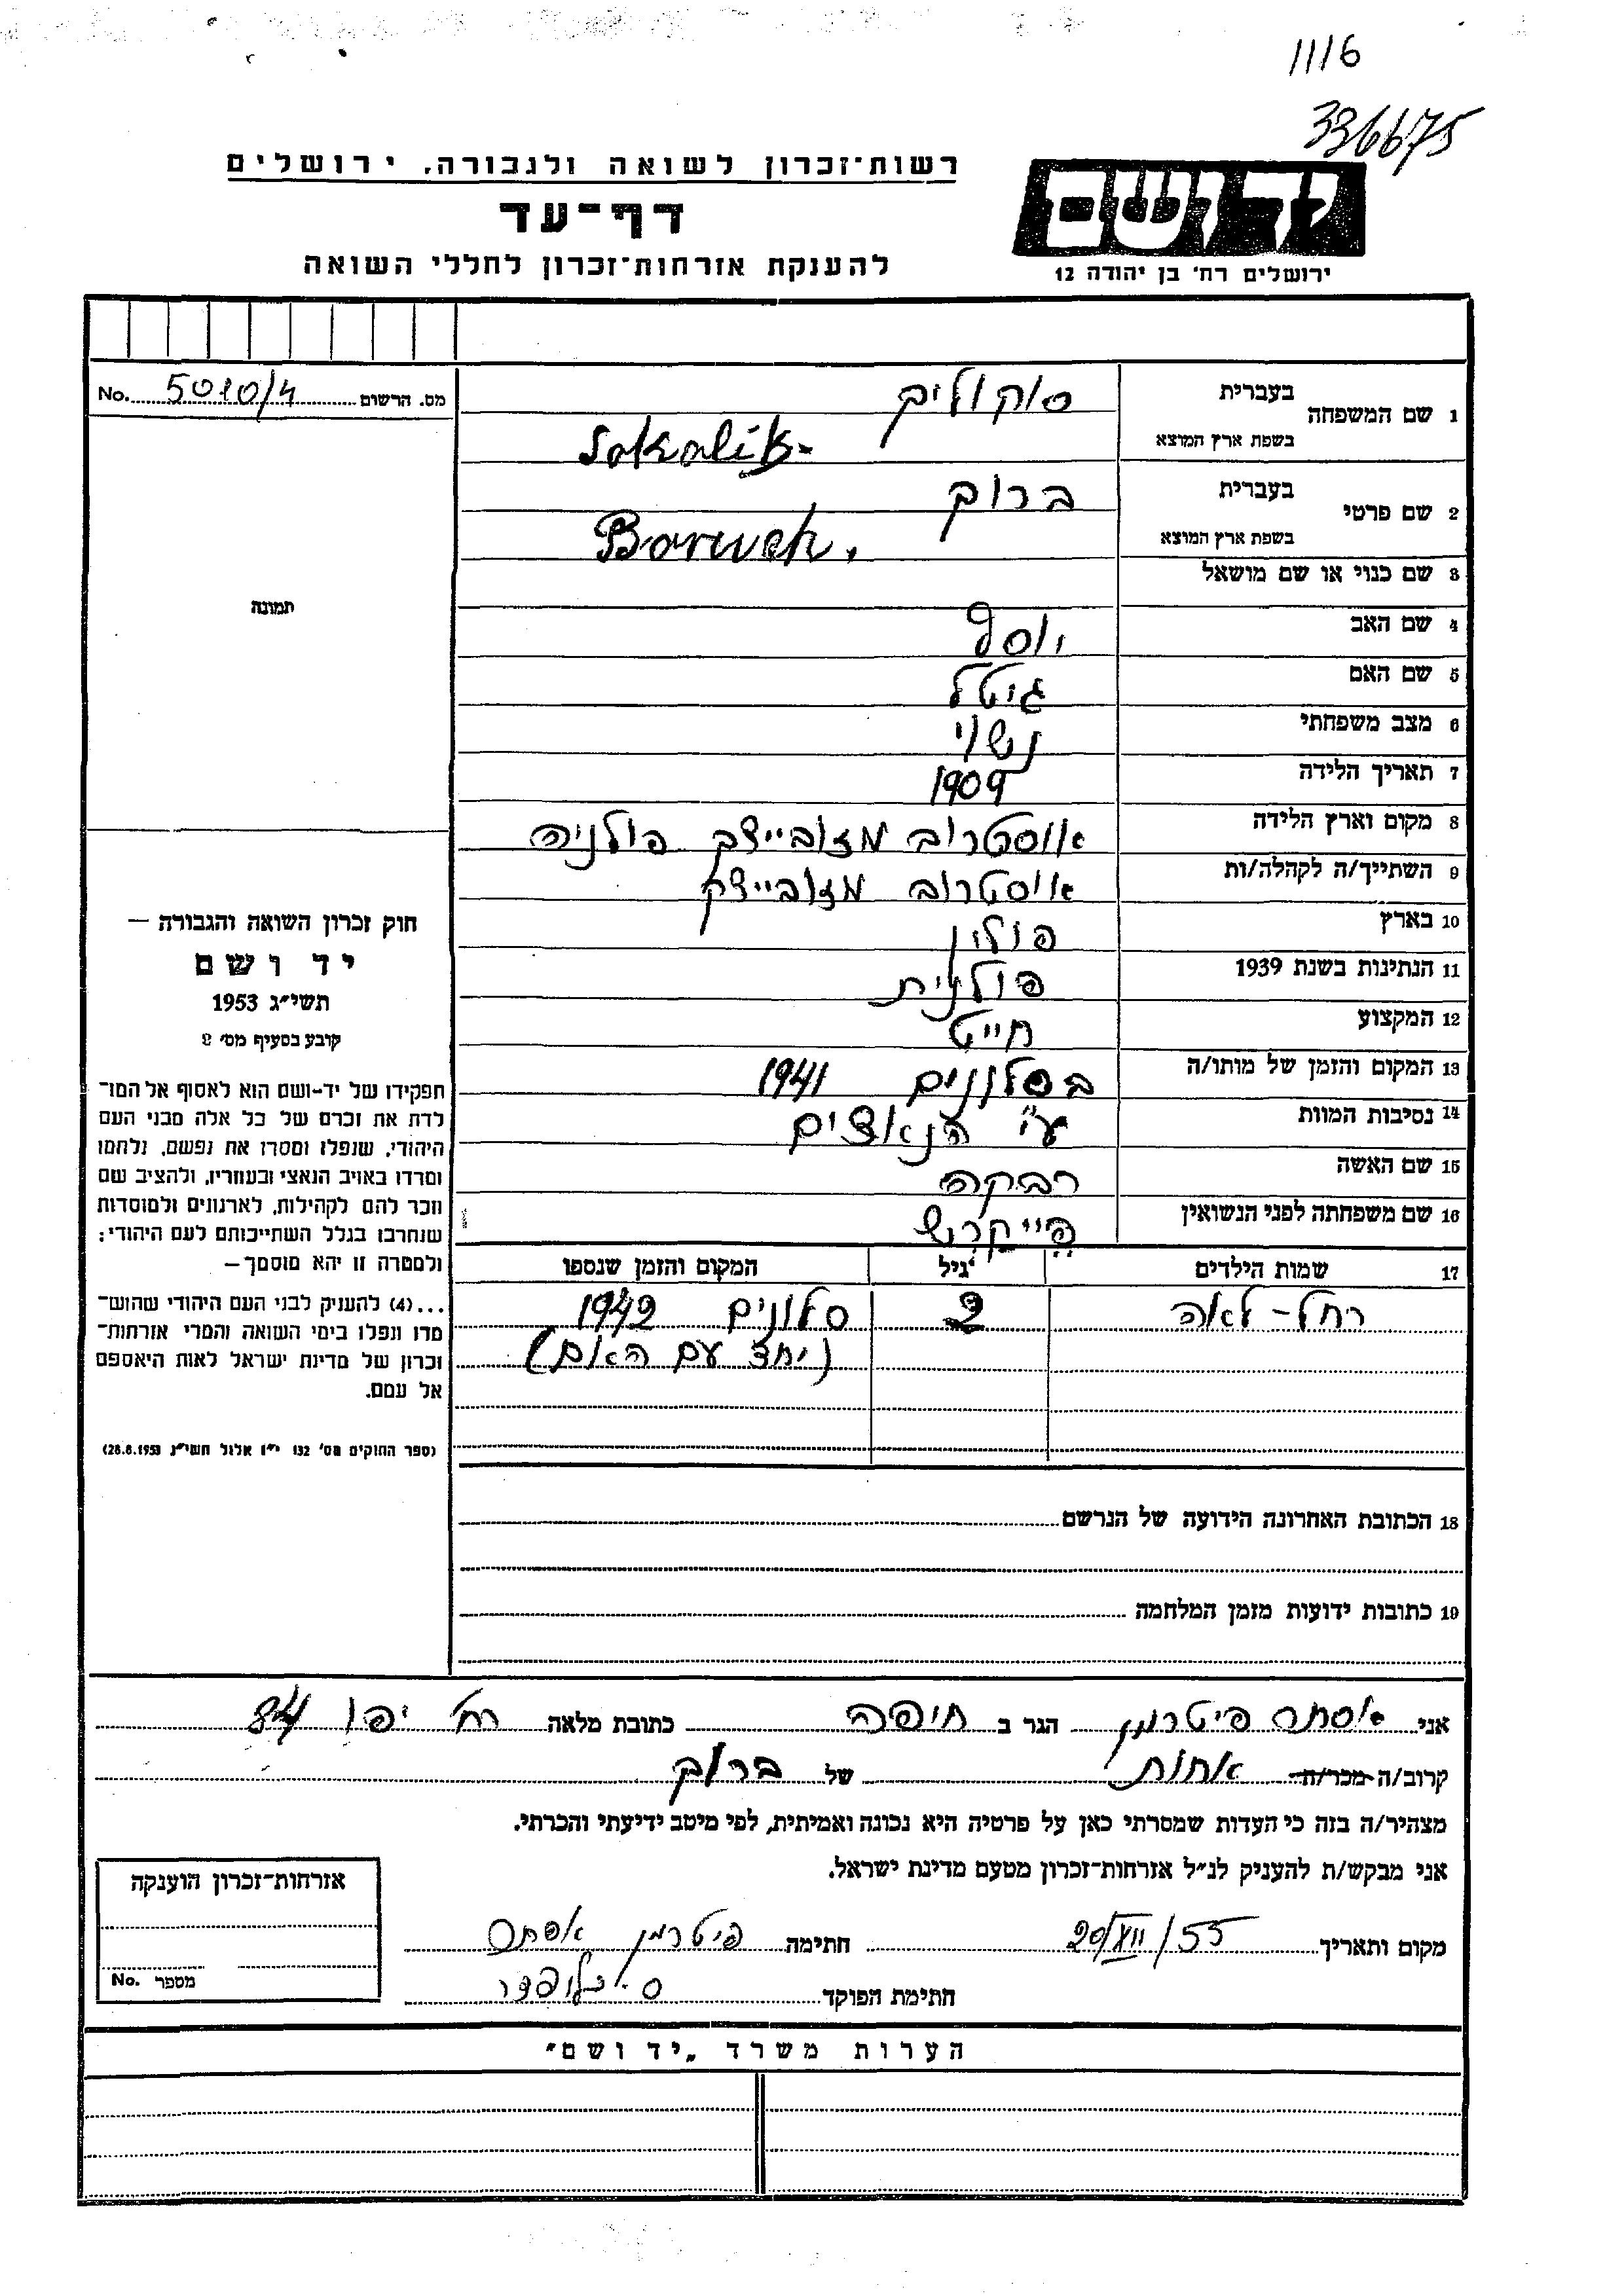 1116
336675
רשות־זכרון לשואה ולגבורה, ירושלים
דף־עד
להענקת אזרחות־זכרון לחללי השואה
יד ושם
ירושלים רח' בן יהודה 12
מס. הרשום 5010/4 No.
תמונה
חוק זכרון השואה והגבורה —
יד ושם
תשי"ג 1953
קובע בסעיף מס' 2
תפקידו של יד-ושם הוא לאסוף אל המו־
לדת את זכרם של כל אלה מבני העם
היהודי, שנפלו ומסרו את נפשם, נלחמו
ומרדו באויב הנאצי ובעוזריו, ולהציב שם
וזכר להם לקהילות, לארגונים ולמוסדות
שנחרבו בגלל השתייכותם לעם היהודי;
ולמטרה זו יהא מוסמך —
...(4) להעניק לבני העם היהודי שהוש־
מדו ונפלו בימי השואה והמרי אזרחות־
זכרון של מדינת ישראל לאות היאספם
אל עמם.
(ספר החוקים מס' 132 י"ז אלול תשי"ג 28.8.1953)
1 שם המשפחה בעברית סוקוליק
בשפת ארץ המוצא Sokolik
2 שם פרטי בעברית ברוך
בשפת ארץ המוצא Boruch.
3 שם כנוי או שם מושאל
4 שם האב יוסף
5 שם האם גיטל
6 מצב משפחתי נשוי
7 תאריך הלידה 1909
8 מקום וארץ הלידה אוסטרוב מזוביצק פולניה
9 השתייך/ה לקהלה/ות אוסטרוב מזוביצק
10 בארץ פולין
11 הנתינות בשנת 1939 פולנית
12 המקצוע חייט
13 המקום והזמן של מותו/ה בסלונים 1941
14 נסיבות המוות ע"י הנאצים
15 שם האשה רבקה
16 שם משפחתה לפני הנשואין
17 שמות הילדים גיל המקום והזמן שנספו
רחל-לאה 2 סלונים 1942
(יחד עם האם)
18 הכתובת האחרונה הידועה של הנרשם
19 כתובות ידועות מזמן המלחמה
אני אסתר פיטרמן הגר ב חיפה כתובת מלאה רח' יפו 84
קרוב/ה מכר/ה אחות של ברוך
מצהיר/ה בזה כי העדות שמסרתי כאן על פרטיה היא נכונה ואמיתית, לפי מיטב ידיעתי והכרתי.
אני מבקש/ת להעניק לנ"ל אזרחות-זכרון מטעם מדינת ישראל.
מקום ותאריך 20/XII/55 חתימה פיטרמן אסתר
חתימת הפוקד
אזרחות־זכרון הוענקה
מספר No.
הערות משרד „יד ושם"